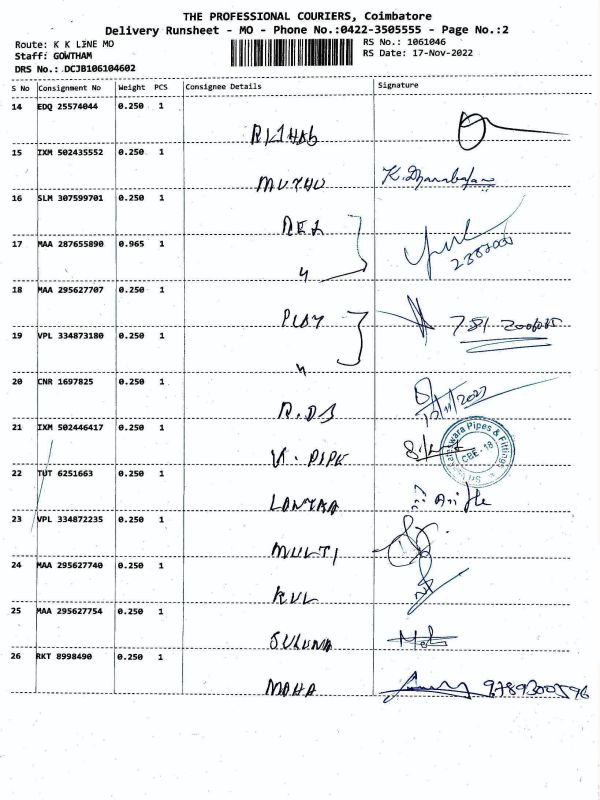 THE PROFESSIONAL COURIERS, Coimbatore
Delivery Runsheet - MO - Phone No.:0422-3505555 - Page No.:2
Route: K K LINE MO
RS No.: 1061046
Staff: GOWTHAM
RS Date: 17-Nov-2022
DRS No.: DCJB106104602
S No Consignment No Weight PCS Consignee Details Signature
14 EDQ 25574044 0.250 1
15 IXM 502435552 0.250 1
MUTHU K. Dhanabalan
16 SLM 307599701 0.250 1
17 MAA 287655890 0.965 1
18 MAA 295627707 0.250 1
PLAY
19 VPL 334873180 0.250 1
20 CNR 1697825 0.250 1
17/11/2022
21 IXM 502446417 0.250 1
V. PIPE
Pipes & Fittings
CBE-18
22 TUT 6251663 0.250 1
23 VPL 334872235 0.250 1
MULTI
24 MAA 295627740 0.250 1
KVL
25 MAA 295627754 0.250 1
SULUNA
26 RKT 8998490 0.250 1
MAHA 9789300596